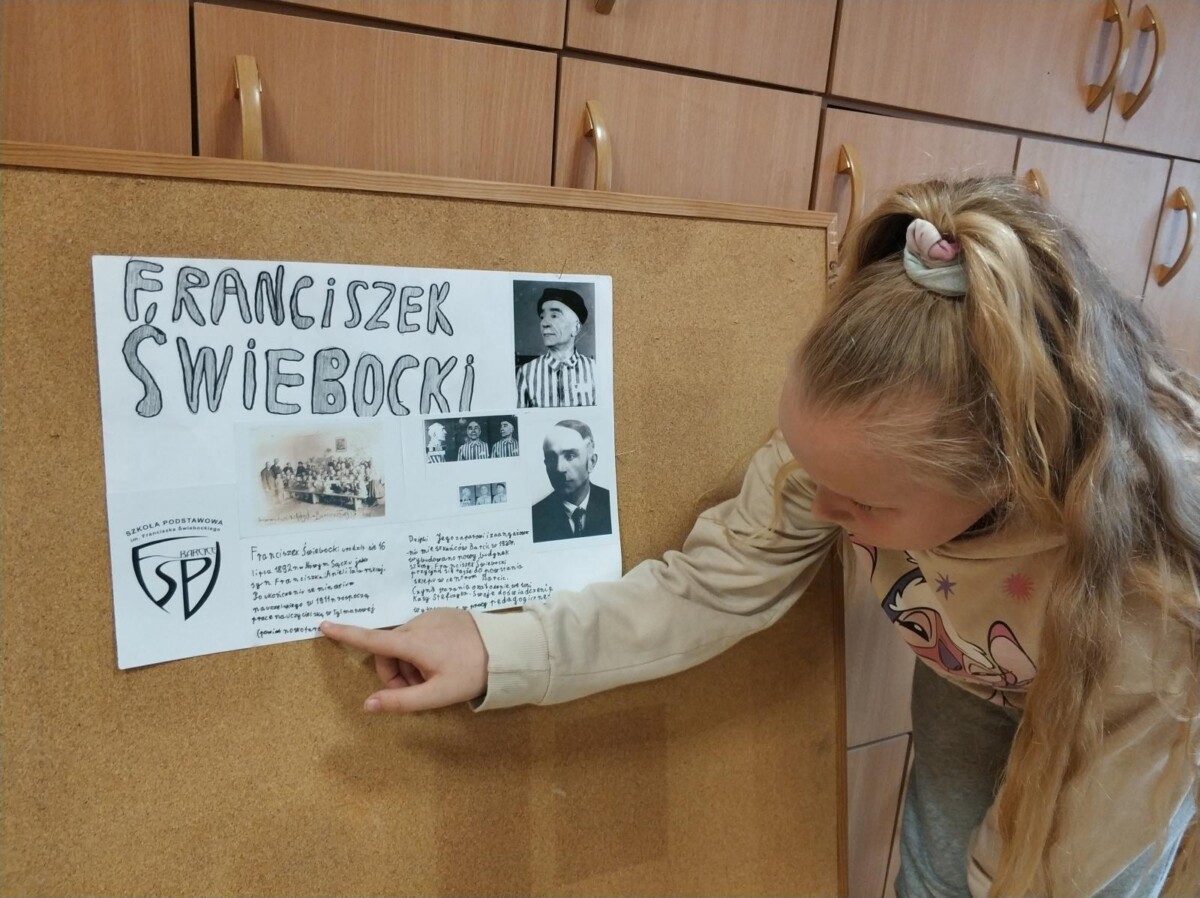 FRANCISZEK
ŚWIEBOCKI
SZKOŁA PODSTAWOWA
im. Franciszka Świebockiego
BARCICE
SP
Franciszek Świebocki urodził się 16
lipca 1892 w Nowym Sączu jako
syn Franciszka i Anieli
Po ukończeniu seminarium
nauczycielskiego w 1911 r. rozpoczą
pracę nauczycielską w
(powiat
Dzięki Jego zaparciu i zaangażowa
niu mieszkańców Barcic w 1927r.
wybudowano nowy budynek
szkoły. Franciszek Świebocki
przyczynił się także do powstania
sklepu w centrum Barcic.
Kasy Stefczyka. Swoje doświadczenie
w pracy pedagogicznej